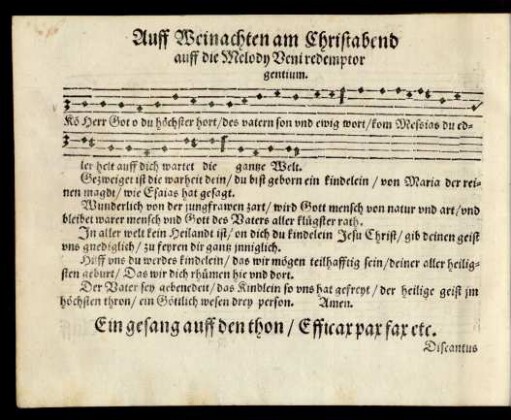 Auff Weinachten am Christabend
auff die Melody Veni redemptor
gentium.
Kō Herr Got o du höchster hort/des vatern son vnd ewig wort/kom Messias du ed-
ler helt auff dich wartet die gantze Welt.
Gezweiget ist die warheit dein/du bist geborn ein kindelein/von Maria der rei-
nen magdt/wie Esaias hat gesagt.
Wunderlich von der jungkrawen zart/wird Gott mensch von natur vnd art/vnd
bleibet warer mensch vnd Gott des Vaters aller klügster rath.
In aller welt kein Heilandt ist/on dich du kindelein Jesu Christ/gib deinen geist
vns gnediglich/zu feyren dir gantz jnniglich.
Hilff vns du werdes kindelein/das wir mögen teilhafftig sein/deiner aller heilig-
sten geburt/Das wir dich rhümen hie vnd dort.
Der Vater sey gebenedeit/das Kindlein so vns hat gefreyt/der heilige geist jm
höchsten thron/ein Göttlich wesen drey person. Amen.
Ein gesang auff den thon/Efficax pax fax etc.
Discantus